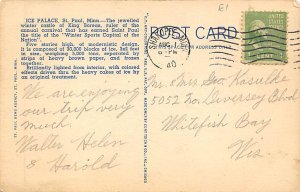 E1
ICE PALACE, St. Paul, Minn.—The jewelled
winter castle of King Boreas, ruler of the
annual carnival that has earned Saint Paul
the title of the "Winter Sports Capital of the
Nation".
Five stories high, of modernistic design.
It is composed of 30,000 blocks of ice. Set deep
in ice, weighing 5,000 tons, separated by
strips of heavy brown paper, and frozen
together.
Brilliantly lighted from interior, with colored
effects driven thru the heavy cakes of ice by
its original treatment.
POST CARD
ADDRESS ONLY
PM
40
We are enjoying
our trip very
much.
Walter Helen
& Harold
Mr. & Mrs Geo Kasulke
5052 No. Diversey Blvd
Whitefish Bay
Wis.